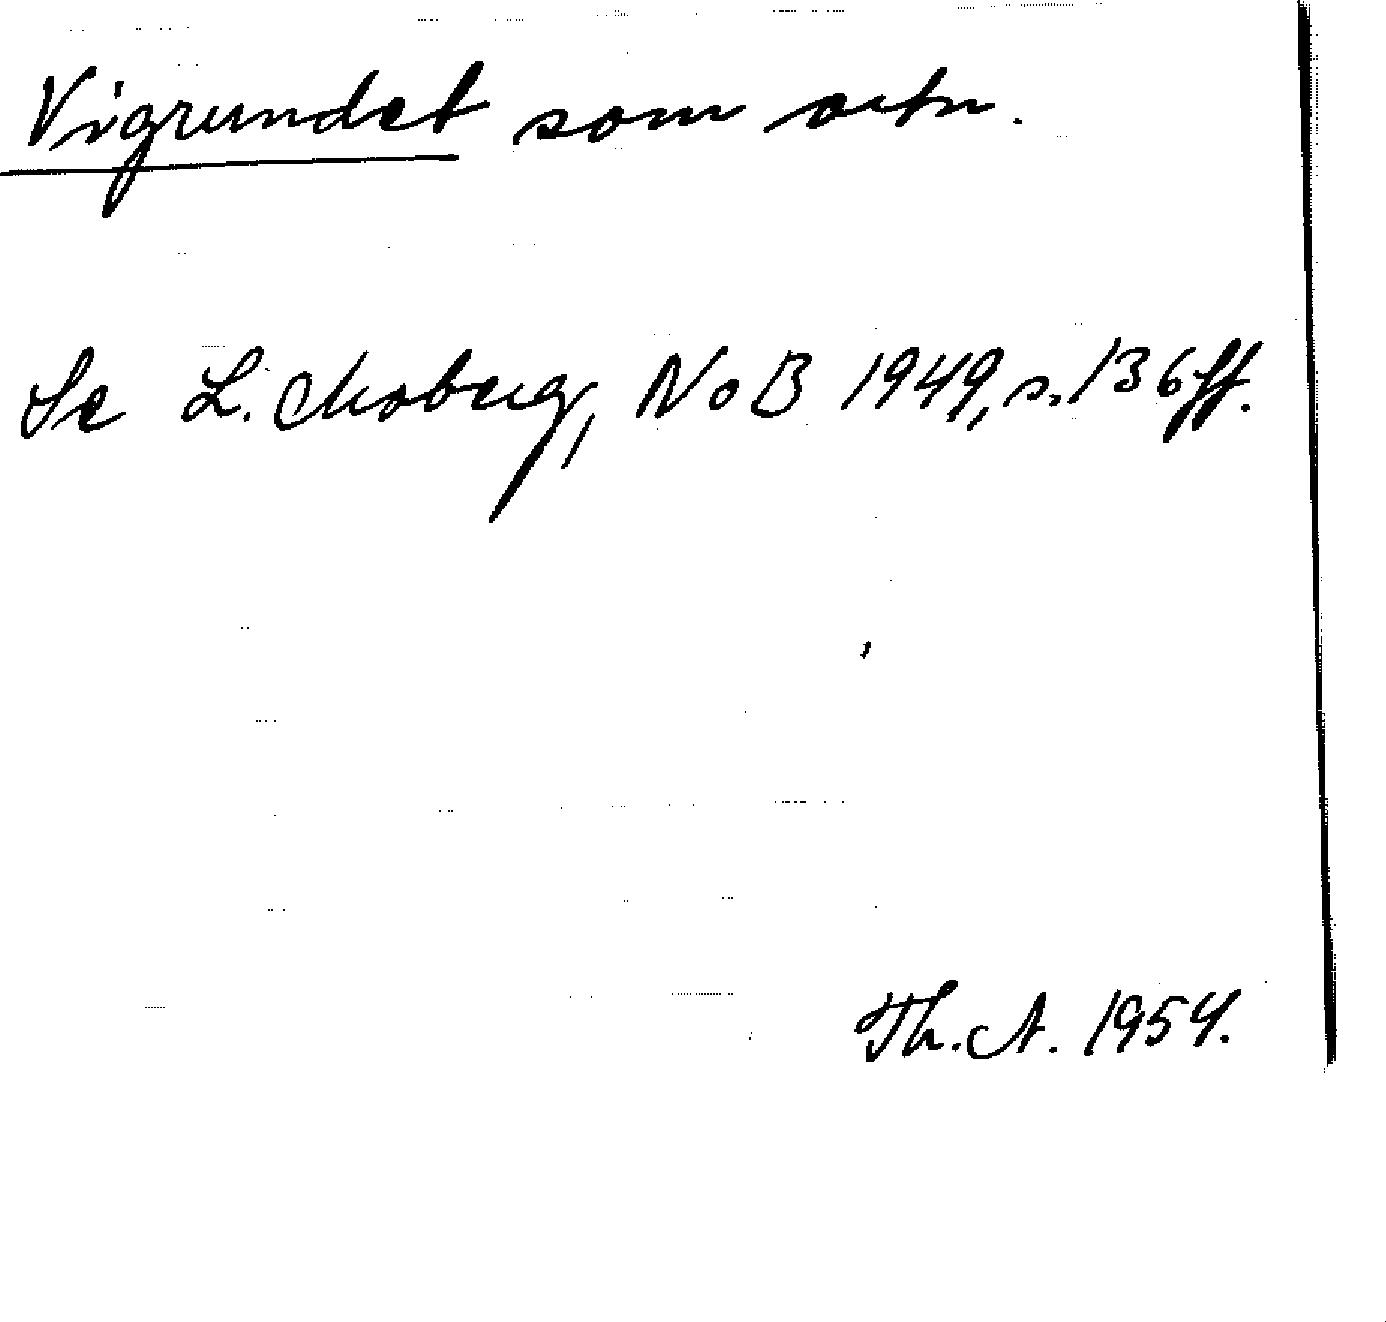 Vigrundet som ortn.
Se L. Moberg, NoB 1949, s. 136 ff.
Th. A. 1954.